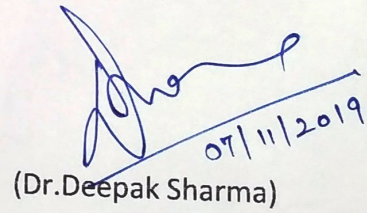 07/11/2019
(Dr.Deepak Sharma)